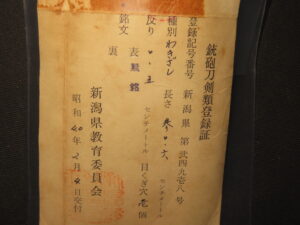 銃砲刀剣類登録証
登録記号番号 新潟県 第弐四九壱八号
種別 わきざし 長さ 参〇・六 センチメートル
反り 〇・五 センチメートル 目くぎ穴 壱個
銘文 表 無銘
裏
新潟県教育委員会
昭和40年2月 日交付